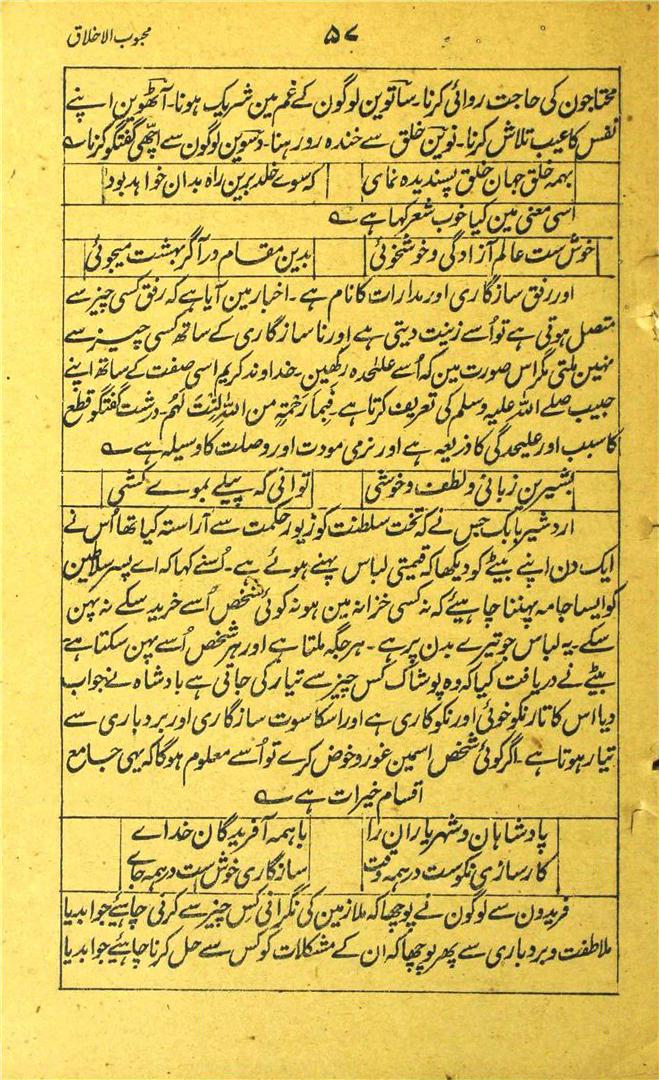 محبوب الاخلاق
۵۷
محتاجون کی حاجت روائی کرنا۔ ساتوین لوگون کے غم مین شریک ہونا۔ آٹھوین اپنے
نفس کا عیب تلاش کرنا۔ نوین خلق سے خندہ رو رہنا۔ دسوین لوگون سے اچھی گفتگو کرنا ؎
بہمہ خلق جہان خلق پسندیدہ نمای
کہ سوے خلد برین راہ بدان خواہد بود
اسی معنی مین کیا خوب شعر کہا ہے ؎
خوش ست عالم آزادگی و خوشخوئی
بدین مقام در آ گر بہشت میجوئی
اور رفق سازگاری اور مدارات کا نام ہے۔ اخبار مین آیا ہے کہ رفق کسی چیز سے
متصل ہوتی ہے تو اُسے زینت دیتی ہے اور ناسازگاری کے ساتھ کسی چیز سے
نہین ملتی مگر اس صورت مین کہ اُسے علیٰحدہ رکھین۔ خداوند کریم اسی صفت کے ساتھ اپنے
حبیب صلے اللہ علیہ وسلم کی تعریف کرتا ہے۔ فَبِمَا رَحْمَةٍ مِنَ اللّٰہِ لِنْتَ لَهُمْ۔ درشت گفتگو قطع
کا سبب اور علیحدگی کا ذریعہ ہے اور نرمی مودت اور وصلت کا وسیلہ ہے ؎
بشیرین زبانی و لطف و خوشی
توانی کہ پیلے بموے کشی
اردشیر بابک جس نے کہ تخت سلطنت کو زیور حکمت سے آراستہ کیا تھا اُس نے
ایک دن اپنے بیٹے کو دیکھا کہ قیمتی لباس پہنے ہوئے ہے۔ اُسنے کہا کہ اے پسر سلاطین
کو ایسا جامہ پہننا چاہیئے کہ نہ کسی خزانہ مین ہو نہ کوئی شخص اُسے خرید سکے نہ پہن
سکے۔ یہ لباس جو تیرے بدن پر ہے۔ ہر جگہ ملتا ہے اور ہر شخص اُسے پہن سکتا ہے
بیٹے نے دریافت کیا کہ وہ پوشاک کس چیز سے تیار کی جاتی ہے بادشاہ نے جواب
دیا اس کا تار نکوخوئی اور نکوکاری ہے اور اسکا سوت سازگاری اور بردباری سے
تیار ہوتا ہے۔ اگر کوئی شخص اسمین غور و خوض کرے تو اُسے معلوم ہوگا کہ یہی جامع
اقسام خیرات ہے ؎
پادشاہان و شہریاران را
با ہمہ آفریدگان خداے
کارسازی نکوست در ہمہ وقت
سازگاری خوش ست در ہمہ جاے
فریدون سے لوگون نے پوچھا کہ ملازمین کی نگرانی کس چیز سے کرنی چاہیئے جواب دیا
ملاطفت و بردباری سے پھر پوچھا کہ ان کے مشکلات کو کس سے حل کرنا چاہیئے جواب دیا